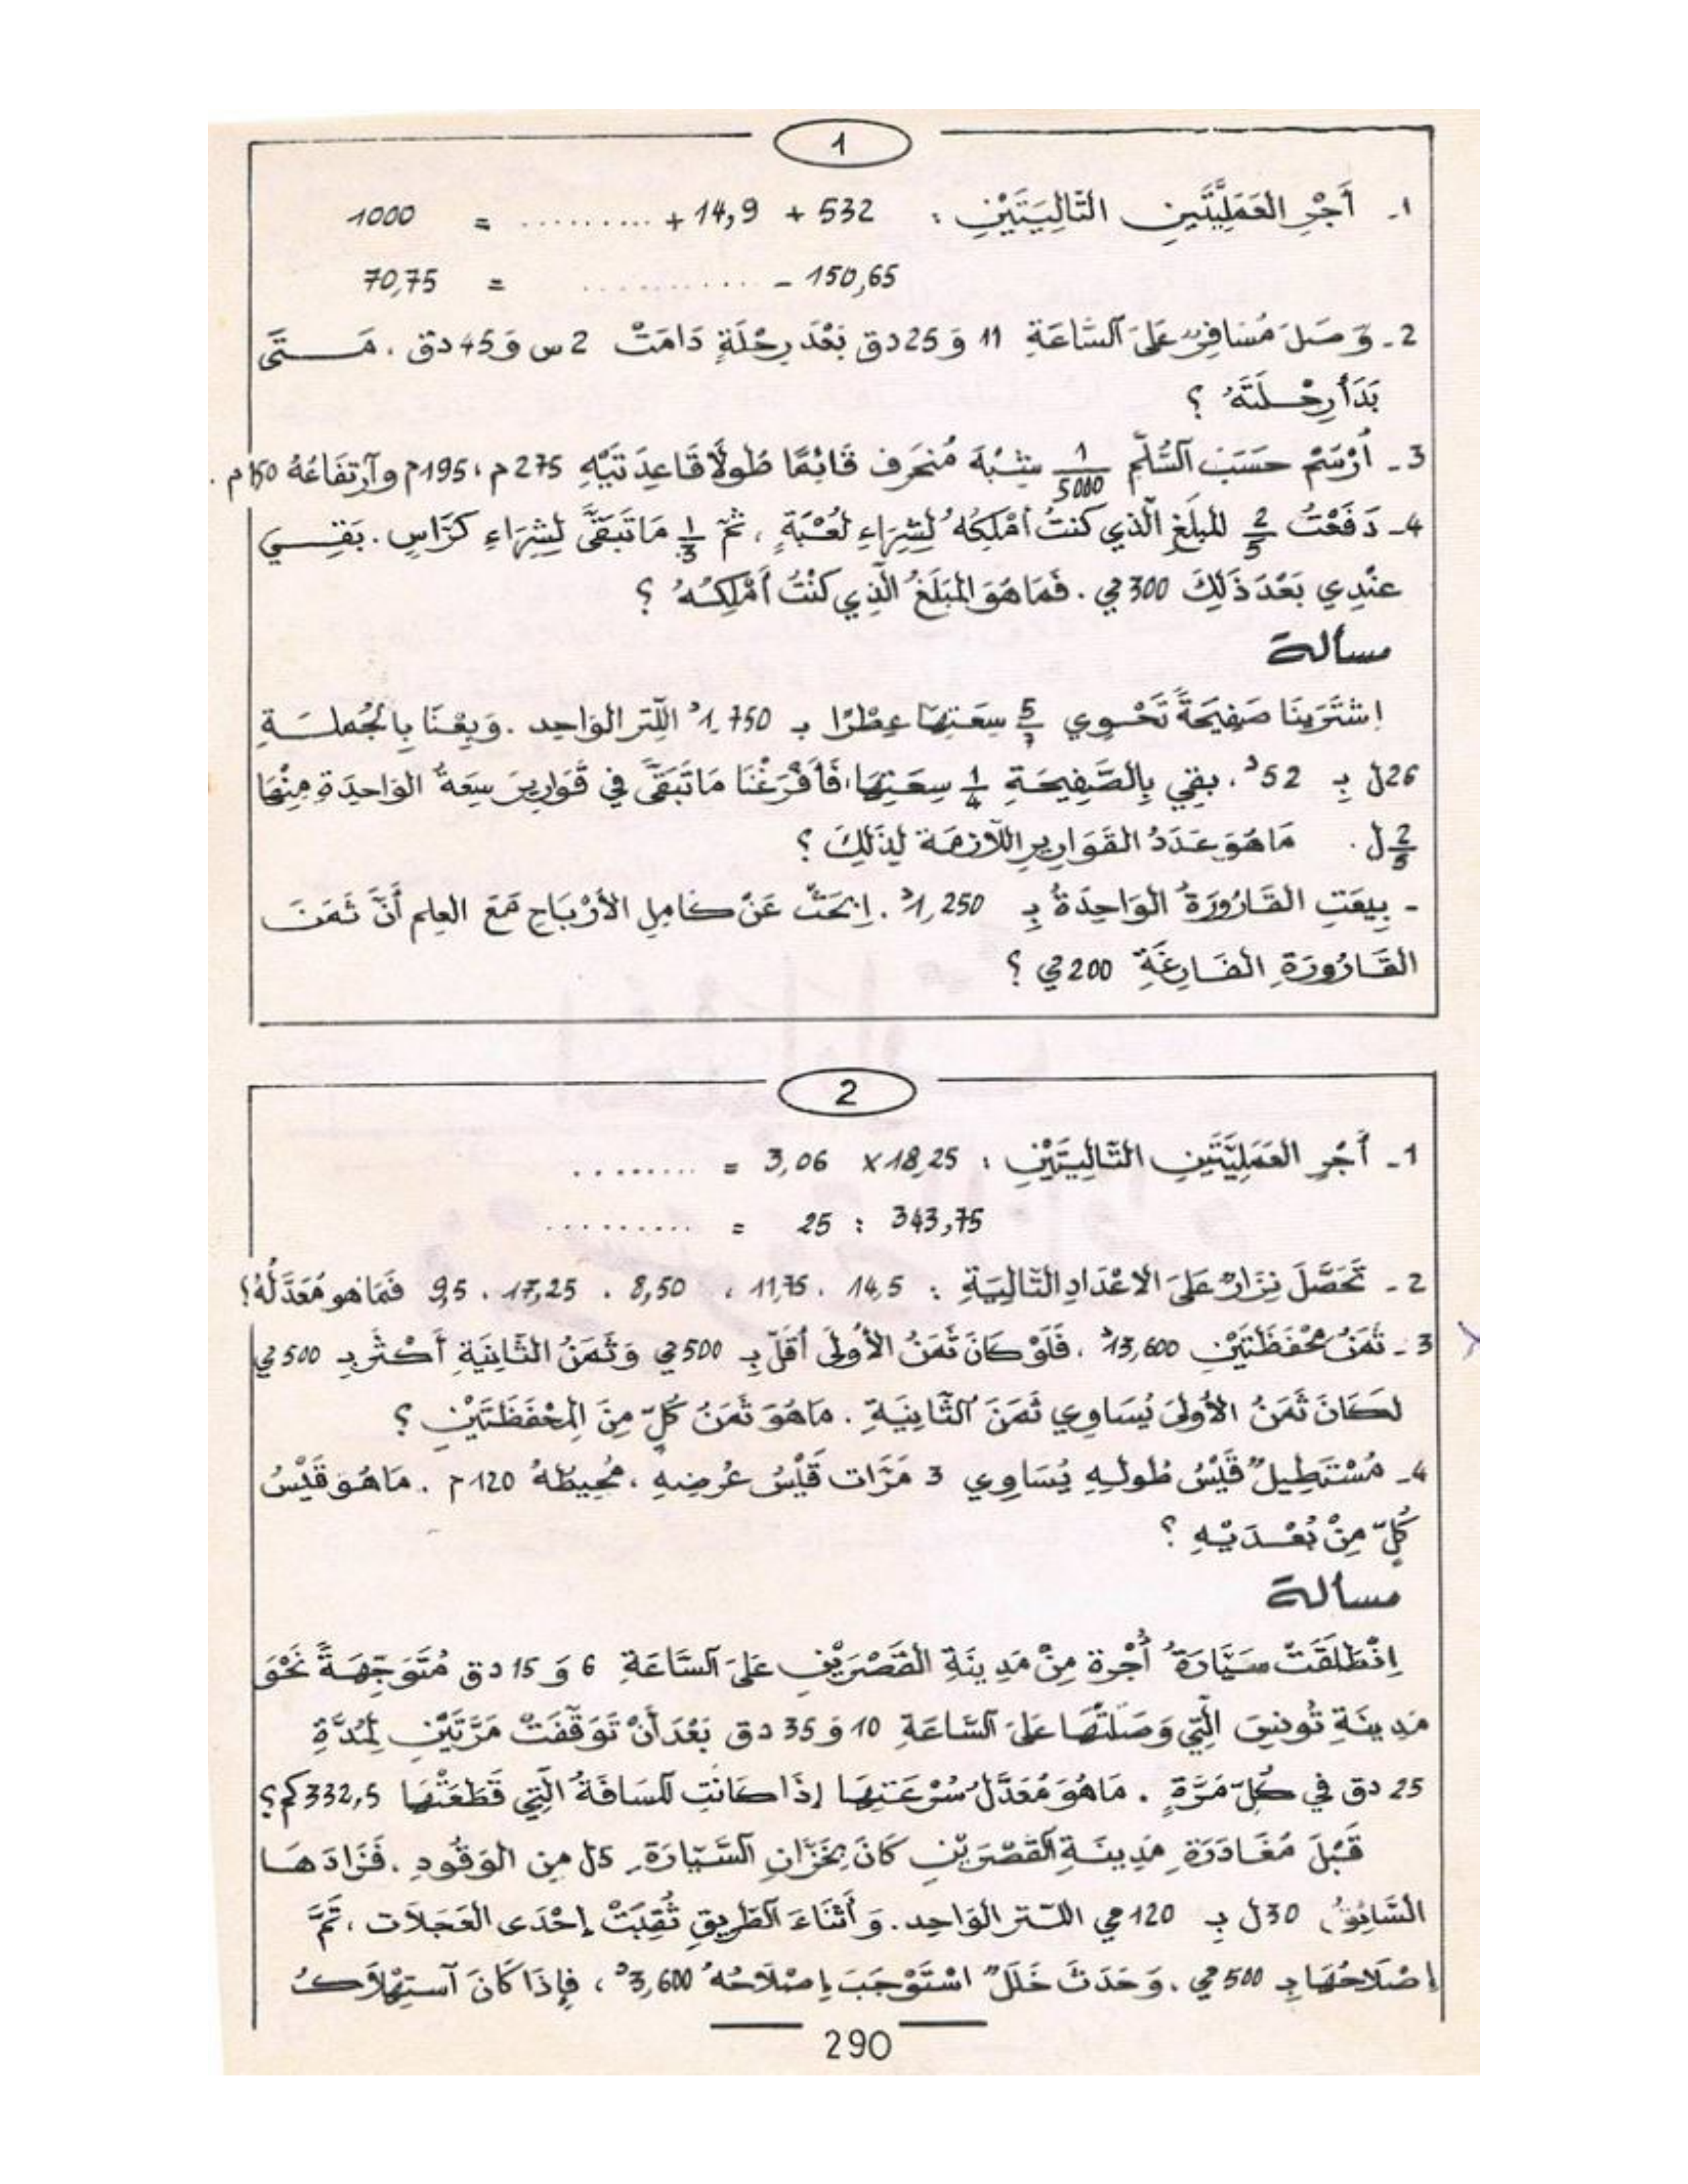 1
1ـ أَجْرِ العَمَلِيَّتَيْنِ التَّالِيَتَيْنِ : 532 + 14,9 + ......... = 1000
150,65 - ........... = 70,75
2ـ وَصَلَ مُسَافِرٌ عَلَى السَّاعَةِ 11 وَ 25 دق بَعْدَ رِحْلَةٍ دَامَتْ 2 س وَ 45 دق . مَـتَى
بَدَأَ رِحْـلَتَهُ ؟
3ـ أُرْسُمْ حَسَبَ السُّلَّمِ 1/5000 شِبْهَ مُنحَرِف قَائِمًا طُولَا قَاعِدَتَيْهِ 275 م ، 195 م وَارْتِفَاعُهُ 150 م .
4ـ دَفَعْتُ 2/5 المَبلَغِ الَّذِي كُنتُ أَمْلِكُهُ لِشِرَاءِ لُعْبَةٍ ، ثُمَّ 1/3 مَا تَبَقَّى لِشِرَاءِ كَرَّاسٍ . بَقِـيَ
عِنْدِي بَعْدَ ذَلِكَ 300 مي . فَمَا هُوَ المَبْلَغُ الَّذِي كُنْتُ أَمْلِكُـهُ ؟
مسألة
اِشْتَرَيْنَا صَفِيحَةً تَحْـوِي 5/7 سِعَتِهَا عِطْرًا بـ 1,750د اللِّتر الوَاحِد . وَبِعْنَا بِالجُملَـةِ
26 ل بِـ 52د . بقِي بِالصَّفِيحَةِ 1/4 سِعَتِهَا ، فَأَفْرَغْنَا مَا تَبَقَّى فِي قَوَارِيرَ سِعَةُ الوَاحِدَةِ مِنْهَا
2/5 ل . مَا هُوَ عَدَدُ القَوَارِيرِ اللَّازِمَة لِذَلِكَ ؟
- بِيعَتِ القَارُورَةُ الوَاحِدَةُ بِـ 1,250د . اِبْحَثْ عَنْ كَامِلِ الأَرْبَاحِ مَعَ العِلم أَنَّ ثَمَنَ
القَارُورَةِ الفَارِغَةِ 200 مي ؟
2
1ـ أَجْرِ العَمَلِيَّتَيْنِ التَّالِيَتَيْنِ : 18,25 × 3,06 = ........
343,75 : 25 = .........
2ـ تَحَصَّلَ نِزَارٌ عَلَى الاعْدَادِ التَّالِيَةِ : 14,5 . 11,75 . 8,50 . 17,25 . 9,5 فَمَا هو مُعَدَّلُهُ ؟
3ـ ثَمَنُ مِحْفَظَتَيْنِ 13,600د . فَلَوْ كَانَ ثَمَنُ الأُولَى أَقَلَّ بِـ 500 مي وَثَمَنُ الثَّانِيَةِ أَكْثَرَ بِـ 500 مي
لَكَانَ ثَمَنُ الأُولَى يُسَاوِي ثَمَنَ الثَّانِيَةِ . مَا هُوَ ثَمَنُ كُلٍّ مِنَ المِحْفَظَتَيْنِ ؟
4ـ مُسْتَطِيلٌ قَيْسُ طُولِـهِ يُسَاوِي 3 مَرَّات قَيْسُ عَرْضِهِ . مُحِيطُهُ 120 م . مَا هُوَ قَيْسُ
كُلٍّ مِنْ بُعْـدَيْهِ ؟
مسألة
اِنْطَلَقَتْ سَيَّارَةُ أُجْرة مِنْ مَدِينَةِ القَصْرَيْنِ عَلَى السَّاعَةِ 6 وَ 15 دق مُتَوَجِّهَـةً نَحْوَ
مَدِينَةِ تُونِسَ الَّتِي وَصَلَتْهَا عَلَى السَّاعَةِ 10 وَ 35 دق بَعْدَ أَنْ تَوَقَّفَتْ مَرَّتَيْنِ لِمُدَّةِ
25 دق فِي كُلِّ مَرَّةٍ . مَا هُوَ مُعَدَّلُ سُرْعَتِهَا إِذَا كَانَتِ المَسَافَةُ الَّتِي قَطَعَتْهَا 332,5 كم ؟
قَبْلَ مُغَادَرَةِ مَدِينَةِ القَصْرَيْنِ كَانَ بِخَزَّانِ السَّيَّارَةِ 5 ل مِن الوَقُودِ . فَزَادَهَـا
السَّائِقُ 30 ل بِـ 120 مي اللـتر الوَاحِد . وَأَثْنَاءَ الطَّرِيقِ ثُقِبَتْ إِحْدَى العَجَلَات ، تَمَّ
إِصْلَاحُهَا بِـ 500 مي . وَحَدَثَ خَلَلٌ اسْتَوْجَبَ إِصْلَاحُهُ 3,600د ، فَإِذَا كَانَ اسْتِهْلَاكُ
290